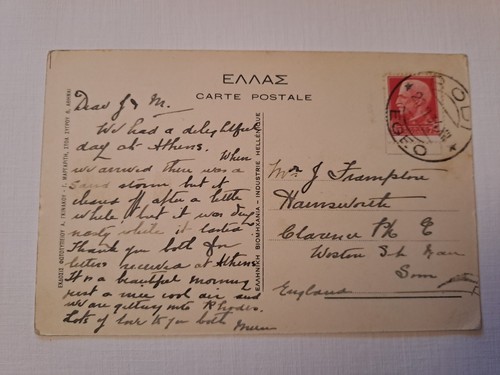 ΕΛΛΑΣ
CARTE POSTALE
Dear J & M.
We had a delightful
day at Athens. When
we arrived there was a
sand storm but it
clears off after a little
while but it was very
nasty while it lasted
Thank you both for
letters received at Athens
It is a beautiful morning
just a nice cool air and
we are getting into Rhodes.
Lots of love to you both
Mr J Frampton
Clarence Pk E
Weston S. Mare
Som
England
RODI
EGEO
ΕΛΛΗΝΙΚΗ ΒΙΟΜΗΧΑΝΙΑ - INDUSTRIE HELLÉNIQUE